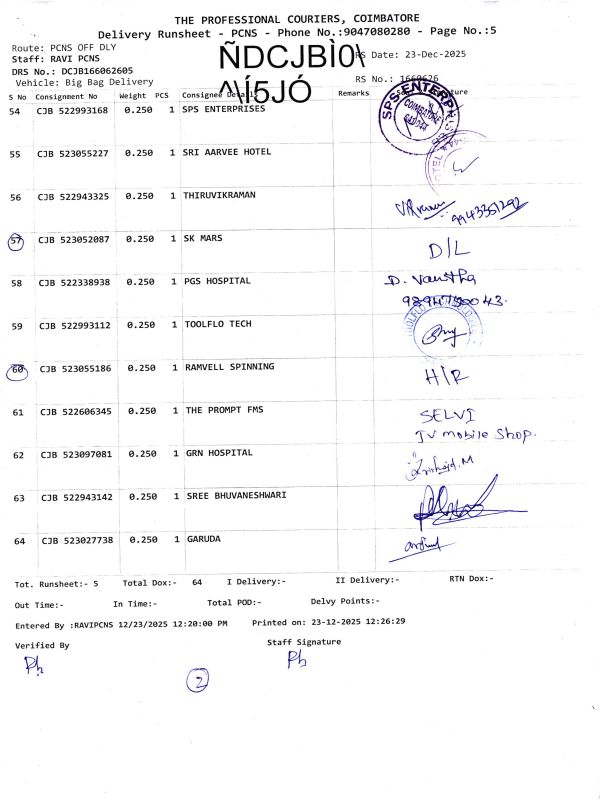 THE PROFESSIONAL COURIERS, COIMBATORE
Delivery Runsheet - PCNS - Phone No.:9047080280 - Page No.:5
Route: PCNS OFF DLY
Staff: RAVI PCNS
ÑDCJBÌ0\
RS Date: 23-Dec-2025
DRS No.: DCJB166062605
^\Í5JÓ
RS No.: 1660626
Vehicle: Big Bag Delivery
S No Consignment No Weight PCS Consignee Details Remarks Signature
54 CJB 522993168 0.250 1 SPS ENTERPRISES SPS ENTERPRISES COIMBATORE
55 CJB 523055227 0.250 1 SRI AARVEE HOTEL
56 CJB 522943325 0.250 1 THIRUVIKRAMAN 9943351292
57 CJB 523052087 0.250 1 SK MARS D/L
58 CJB 522338938 0.250 1 PGS HOSPITAL D. Vanitha
59 CJB 522993112 0.250 1 TOOLFLO TECH
60 CJB 523055186 0.250 1 RAMVELL SPINNING H/R
61 CJB 522606345 0.250 1 THE PROMPT FMS SELVI
JV mobile Shop.
62 CJB 523097081 0.250 1 GRN HOSPITAL
63 CJB 522943142 0.250 1 SREE BHUVANESHWARI
64 CJB 523027738 0.250 1 GARUDA
Tot. Runsheet:- 5 Total Dox:- 64 I Delivery:- II Delivery:- RTN Dox:-
Out Time:- In Time:- Total POD:- Delvy Points:-
Entered By :RAVIPCNS 12/23/2025 12:20:00 PM Printed on: 23-12-2025 12:26:29
Verified By Staff Signature
2